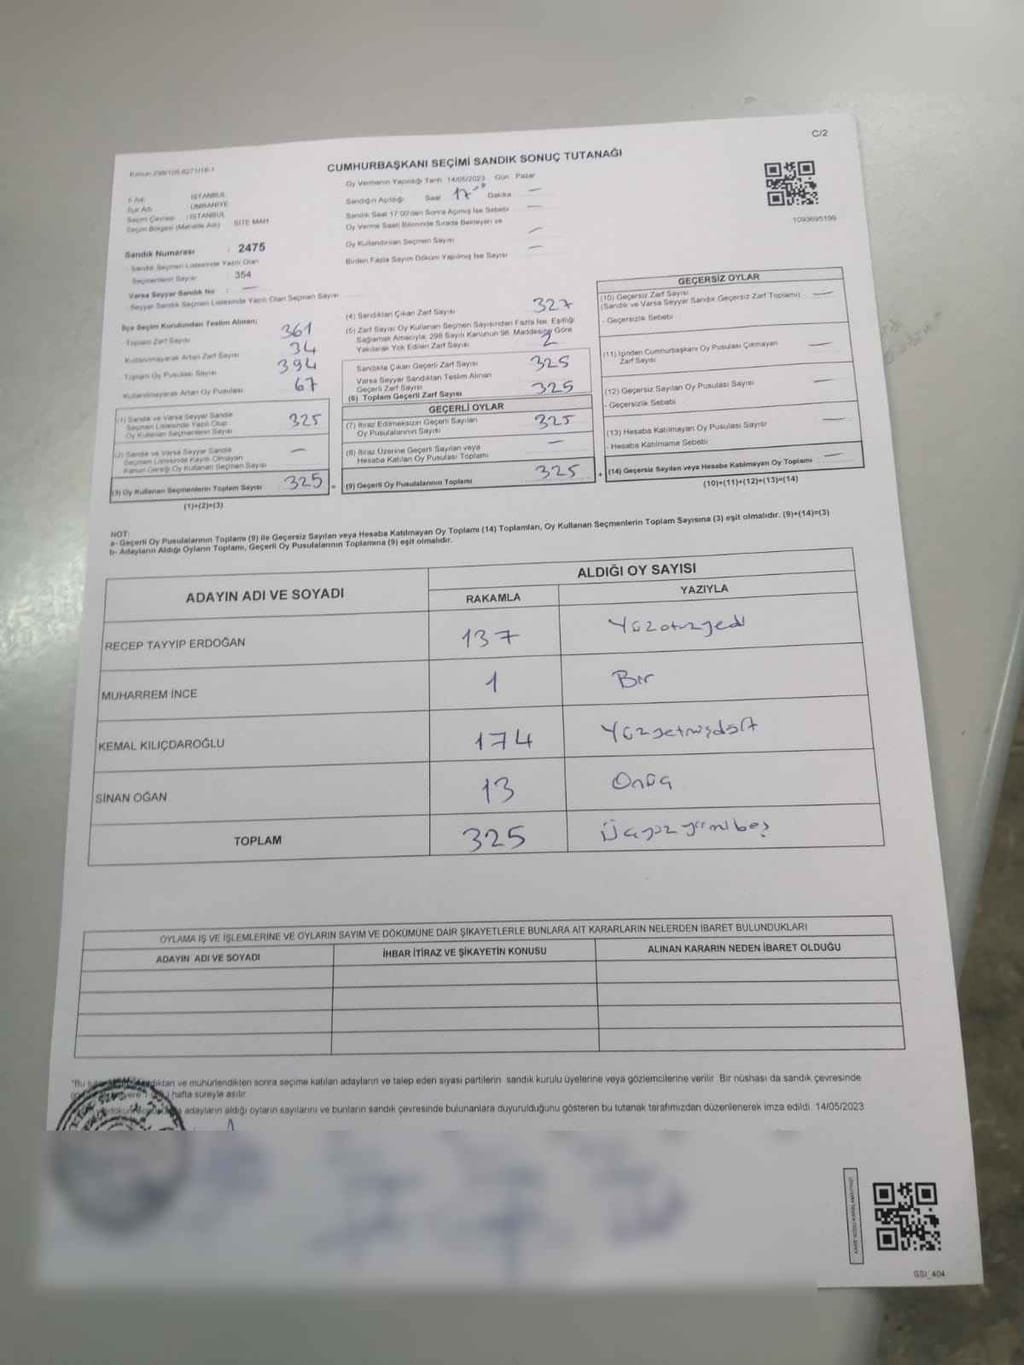 C/2
CUMHURBAŞKANI SEÇİMİ SANDIK SONUÇ TUTANAĞI
Oy Vermenin Yapıldığı Tarih 14/05/2023 Gün Pazar
Sandığın Açıldığı Saat 17 Dakika —
Sandık Saat 17:00'den Sonra Açılmış İse Sebebi —
Oy Verme Saati Bitiminde Sırada Bekleyen ve
Oy Kullandırılan Seçmen Sayısı —
Birden Fazla Sayım Döküm Yapılmış İse Sayısı —
1093695196
İli Adı : İSTANBUL
İlçe Adı : ÜMRANİYE
Seçim Çevresi : İSTANBUL
Seçim Bölgesi (Mahalle Adı) SİTE MAH
Sandık Numarası : 2475
Sandık Seçmen Listesinde Yazılı Olan
Seçmenlerin Sayısı : 354
Varsa Seyyar Sandık No : —
Seyyar Sandık Seçmen Listesinde Yazılı Olan Seçmen Sayısı
İlçe Seçim Kurulundan Teslim Alınan;
Toplam Zarf Sayısı 361
Kullanılmayarak Artan Zarf Sayısı 34
Toplam Oy Pusulası Sayısı 394
Kullanılmayarak Artan Oy Pusulası 67
(1) Sandık ve Varsa Seyyar Sandık
Seçmen Listesinde Yazılı Olup
Oy Kullanan Seçmenlerin Sayısı 325
(2) Sandık ve Varsa Seyyar Sandık
Seçmen Listesinde Kaydı Olmayan
Kanun Gereği Oy Kullanan Seçmen Sayısı —
(3) Oy Kullanan Seçmenlerin Toplam Sayısı 325 =
(1)+(2)=(3)
(4) Sandıktan Çıkan Zarf Sayısı 327
(5) Zarf Sayısı Oy Kullanan Seçmen Sayısından Fazla İse, Eşitliği
Sağlamak Amacıyla; 298 Sayılı Kanunun 98. Maddesine Göre
Yakılarak Yok Edilen Zarf Sayısı 2
Sandıkta Çıkan Geçerli Zarf Sayısı 325
Varsa Seyyar Sandıktan Teslim Alınan
Geçerli Zarf Sayısı
(6) Toplam Geçerli Zarf Sayısı 325
GEÇERLİ OYLAR
(7) İtiraz Edilmeksizin Geçerli Sayılan
Oy Pusulalarının Sayısı 325
(8) İtiraz Üzerine Geçerli Sayılan veya
Hesaba Katılan Oy Pusulası Toplamı —
(9) Geçerli Oy Pusulalarının Toplamı 325 +
GEÇERSİZ OYLAR
(10) Geçersiz Zarf Sayısı
(Sandık ve Varsa Seyyar Sandık Geçersiz Zarf Toplamı) —
- Geçersizlik Sebebi
(11) İçinden Cumhurbaşkanı Oy Pusulası Çıkmayan
Zarf Sayısı —
(12) Geçersiz Sayılan Oy Pusulası Sayısı —
- Geçersizlik Sebebi
(13) Hesaba Katılmayan Oy Pusulası Sayısı —
- Hesaba Katılmama Sebebi
(14) Geçersiz Sayılan veya Hesaba Katılmayan Oy Toplamı —
(10)+(11)+(12)+(13)=(14)
NOT:
a- Geçerli Oy Pusulalarının Toplamı (9) ile Geçersiz Sayılan veya Hesaba Katılmayan Oy Toplamı (14) Toplamları, Oy Kullanan Seçmenlerin Toplam Sayısına (3) eşit olmalıdır. (9)+(14)=(3)
b- Adayların Aldığı Oyların Toplamı, Geçerli Oy Pusulalarının Toplamına (9) eşit olmalıdır.
ADAYIN ADI VE SOYADI ALDIĞI OY SAYISI
RAKAMLA YAZIYLA
RECEP TAYYİP ERDOĞAN 137 Yüzotuzyedi
MUHARREM İNCE 1 Bir
KEMAL KILIÇDAROĞLU 174 Yüzyetmişdört
SİNAN OĞAN 13 Onüç
TOPLAM 325 Üçyüzyirmibeş
OYLAMA İŞ VE İŞLEMLERİNE VE OYLARIN SAYIM VE DÖKÜMÜNE DAİR ŞİKAYETLERLE BUNLARA AİT KARARLARIN NELERDEN İBARET BULUNDUKLARI
ADAYIN ADI VE SOYADI İHBAR İTİRAZ VE ŞİKAYETİN KONUSU ALINAN KARARIN NEDEN İBARET OLDUĞU
"Bu ve mühürlendikten sonra seçime katılan adayların ve talep eden siyasi partilerin sandık kurulu üyelerine veya gözlemcilerine verilir. Bir nüshası da sandık çevresinde
hafta süreyle asılır.
adayların aldığı oyların sayılarını ve bunların sandık çevresinde bulunanlara duyurulduğunu gösteren bu tutanak tarafımızdan düzenlenerek imza edildi. 14/05/2023
GSİ_404